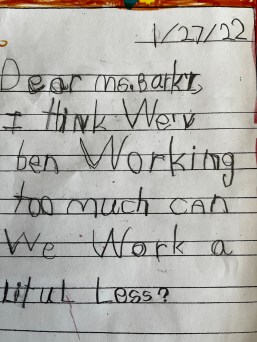 1/27/22
Dear Ms. Barkr,
I think Wev
ben Working
too much can
We Work a
Litul Less?